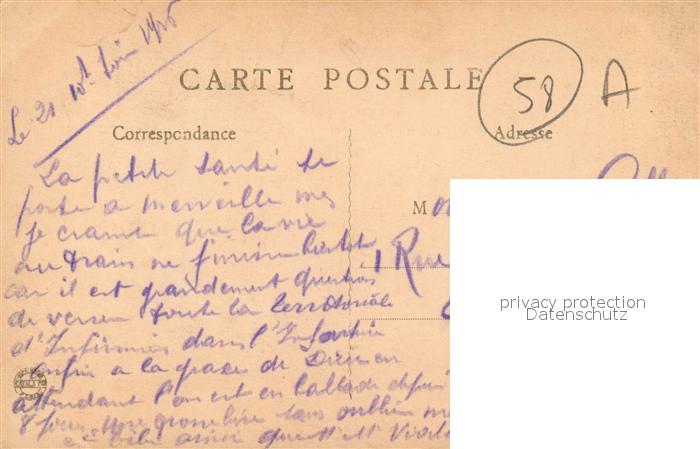 Le 21
CARTE POSTALE
58 A
Correspondance
Adresse
La petite santé se
porte a merveille mes
je craint que la vie
M
au train ne finisse bientot
1 Rue
car il est grandement question
de verser toute la territoriale
d'Infirmiers dans l'Infantrie
enfin a la grace de Dieu en
attendant l'on est en ballade depuis
8 jours une grosse bise sans oublier
ainsi que
privacy protection
Datenschutz